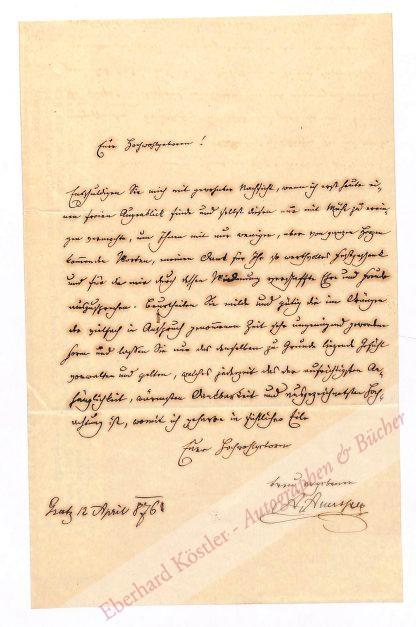 Euer Hochwohlgeboren!
Entschuldigen Sie mich mit gewohnter Nachsicht, wenn ich erst heute ei-
nen freien Augenblick finde und selbst diesen nur mit Mühe zu errin-
gen vermochte, um Ihnen mit nur wenigen, aber von ganzem Herzen
kommenden Worten, meinen Dank für Ihr so werthvolles Festgeschenk
und für die mir durch dessen Widmung verschaffte Ehre und Freude
auszusprechen. Beurtheilen Sie milde und gütig die im Drange
der vielfach in Anspruch genommenen Zeit sehr ungenügend gewordene
Form und lassen Sie nur das derselben zu Grunde liegende Gefühl
vorwalten und gelten, welches jederzeit das der aufrichtigsten An-
hänglichkeit, wärmsten Dankbarkeit und ausgezeichnetsten Hoch-
achtung ist, womit ich geharre in sichtlicher Eile
Euer Hochwohlgeboren
treu ergebener
Gratz 12 April 876
Eberhard Köstler - Autographen & Bücher